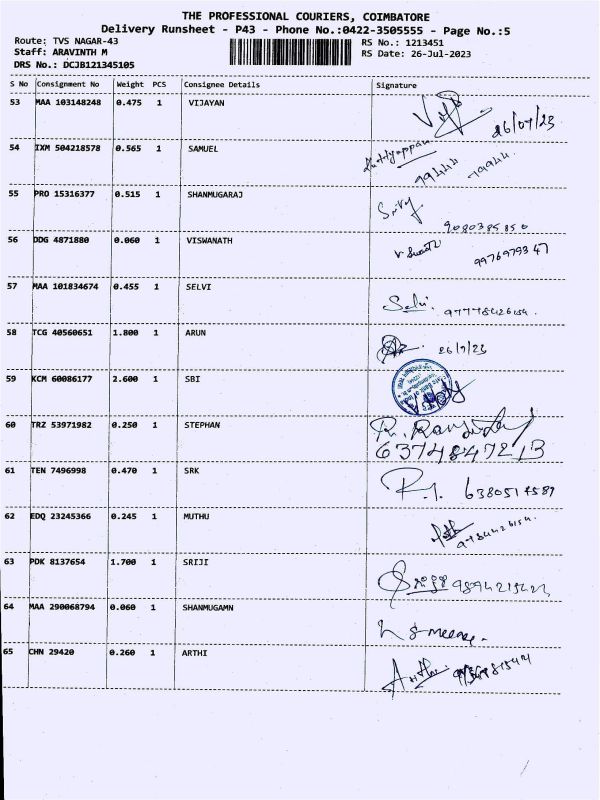 THE PROFESSIONAL COURIERS, COIMBATORE
Delivery Runsheet - P43 - Phone No.:0422-3505555 - Page No.:5
Route: TVS NAGAR-43 RS No.: 1213451
Staff: ARAVINTH M RS Date: 26-Jul-2023
DRS No.: DCJB121345105
S No Consignment No Weight PCS Consignee Details Signature
53 MAA 103148248 0.475 1 VIJAYAN
26/07/23
54 IXM 504218578 0.565 1 SAMUEL
79444
55 PRO 15316377 0.515 1 SHANMUGARAJ
9080385850
56 DDG 4871880 0.060 1 VISWANATH
9976979347
57 MAA 101834674 0.455 1 SELVI Selvi
58 TCG 40560651 1.800 1 ARUN 26/7/23
59 KCM 60086177 2.600 1 SBI
60 TRZ 53971982 0.250 1 STEPHAN
6374847213
61 TEN 7496998 0.470 1 SRK
6380514587
62 EDQ 23245366 0.245 1 MUTHU
63 PDK 8137654 1.700 1 SRIJI
64 MAA 290068794 0.060 1 SHANMUGAMN
65 CHN 29420 0.260 1 ARTHI